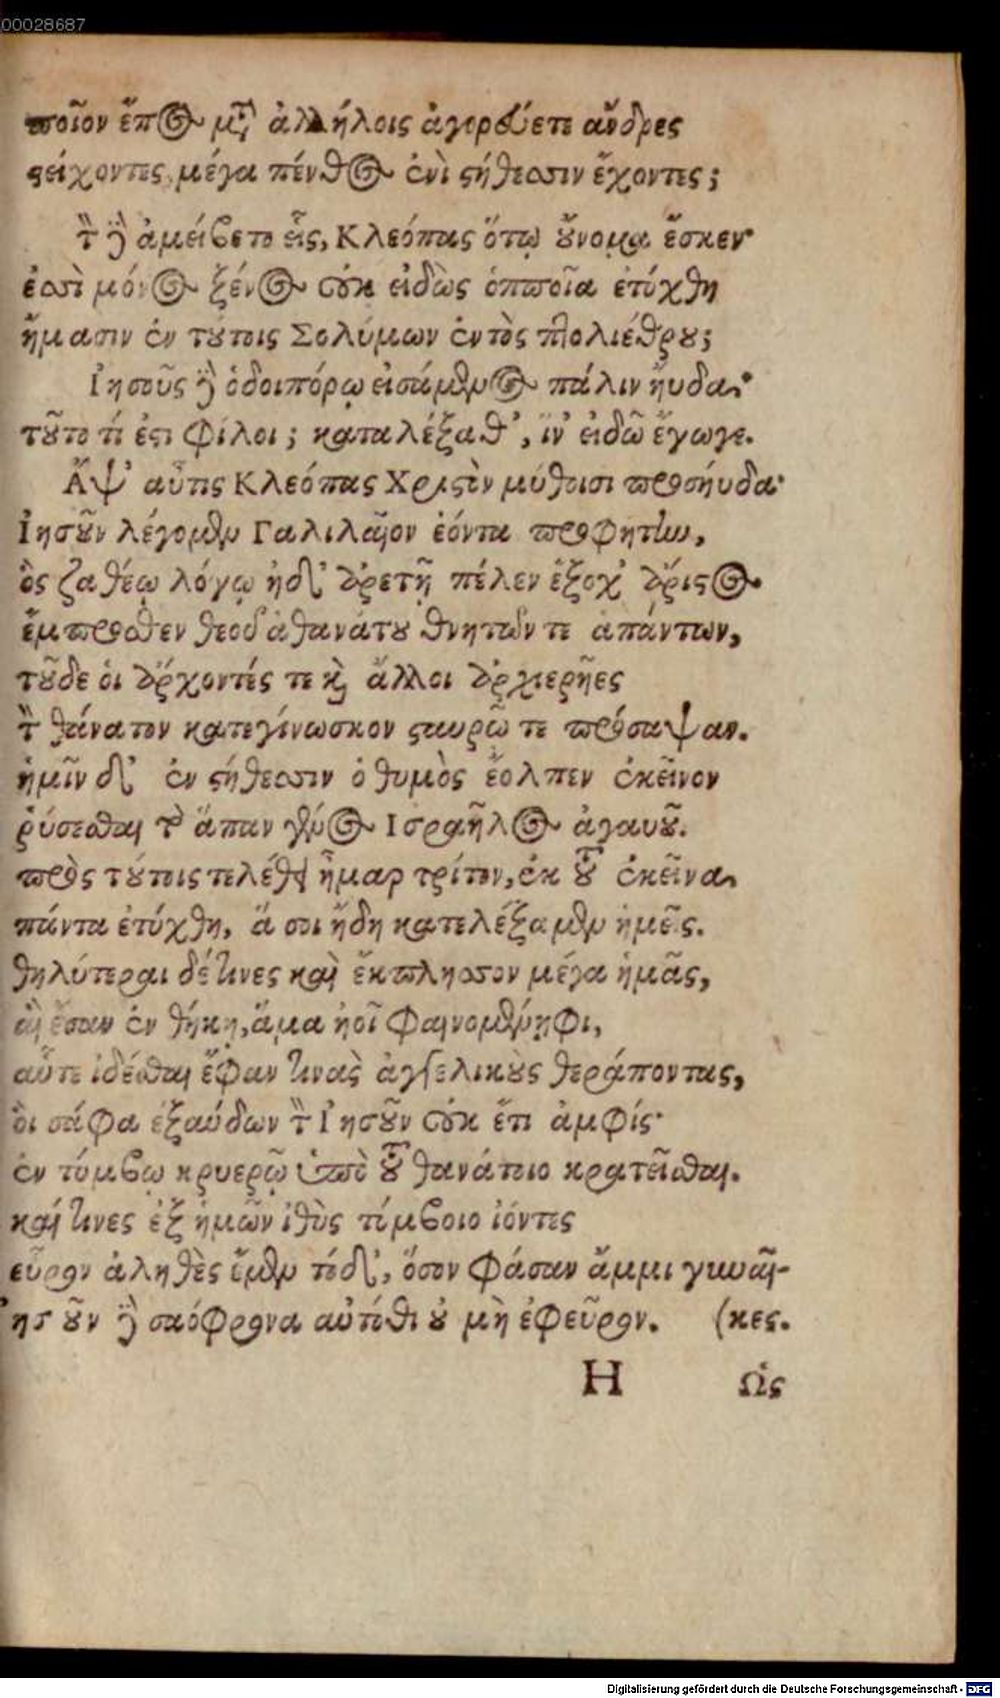 00028687
ποῖον ἔπος μετ' ἀλλήλοις ἀγορεύετε ἄνδρες
στείχοντες, μέγα πένθος ἐνὶ στήθεσσιν ἔχοντες;
τὸν δ' ἀμείβετο εἷς, Κλεόπας ὅτῳ οὔνομα ἔσκεν·
ἐσσὶ μόνος ξένος οὐκ εἰδὼς ὁπποῖα ἐτύχθη
ἤμασιν ἐν τούτοις Σολύμων ἐντὸς πτολιέθρου;
Ἰησοῦς δ' ὁδοιπόρῳ εἰσάμενος πάλιν ηὔδα·
τοῦτο τί ἐστι φίλοι; καταλέξαθ', ἵν' εἰδῶ ἔγωγε.
Ἂψ αὖτις Κλεόπας Χριστὸν μύθοισι προσηύδα·
Ἰησοῦν λέγομεν Γαλιλαῖον ἐόντα προφήτην,
ὃς ζαθέῳ λόγῳ ἠδ' ἀρετῇ πέλεν ἔξοχ' ἄριστος
ἔμπροσθεν θεοῦ ἀθανάτου θνητῶν τε ἁπάντων,
τοῦδε οἱ ἄρχοντές τε καὶ ἄλλοι ἀρχιερῆες
τὸν θάνατον κατεγίνωσκον σταυρῷ τε πρόσαψαν.
ἡμῖν δ' ἐν στήθεσσιν ὁ θυμὸς ἔολπεν ἐκεῖνον
ῥύσεσθαι τὸ ἅπαν γένος Ἰσραῆλος ἀγαυοῦ.
πρὸς τούτοις τελέθει ἦμαρ τρίτον, ἐκ τοῦ ἐκεῖνα
πάντα ἐτύχθη, ἅ σοι ἤδη κατελέξαμεν ἡμεῖς.
θηλύτεραι δέ τινες καὶ ἔκπλησσον μέγα ἡμᾶς,
αἳ ἔσαν ἐν θήκῃ, ἅμα ἠοῖ φαινομένηφι,
αὖτε ἰδέσθαι ἔφαν τινὰς ἀγγελικοὺς θεράποντας,
οἳ σάφα ἐξαύδων τὸν Ἰησοῦν οὐκ ἔτι ἀμφίς·
ἐν τύμβῳ κρυερῷ ὑπὸ τοῦ θανάτοιο κρατεῖσθαι.
καί τινες ἐξ ἡμῶν ἰθὺς τύμβοιο ἰόντες
εὗρον ἀληθὲς ἔμεν τόδ', ὅσον φάσαν ἄμμι γυναῖ-
Ἰησοῦν δὲ σαόφρονα αὐτόθι οὐ μὴ ἐφεῦρον. (κες.
Η Ὡς
Digitalisierung gefördert durch die Deutsche Forschungsgemeinschaft - DFG